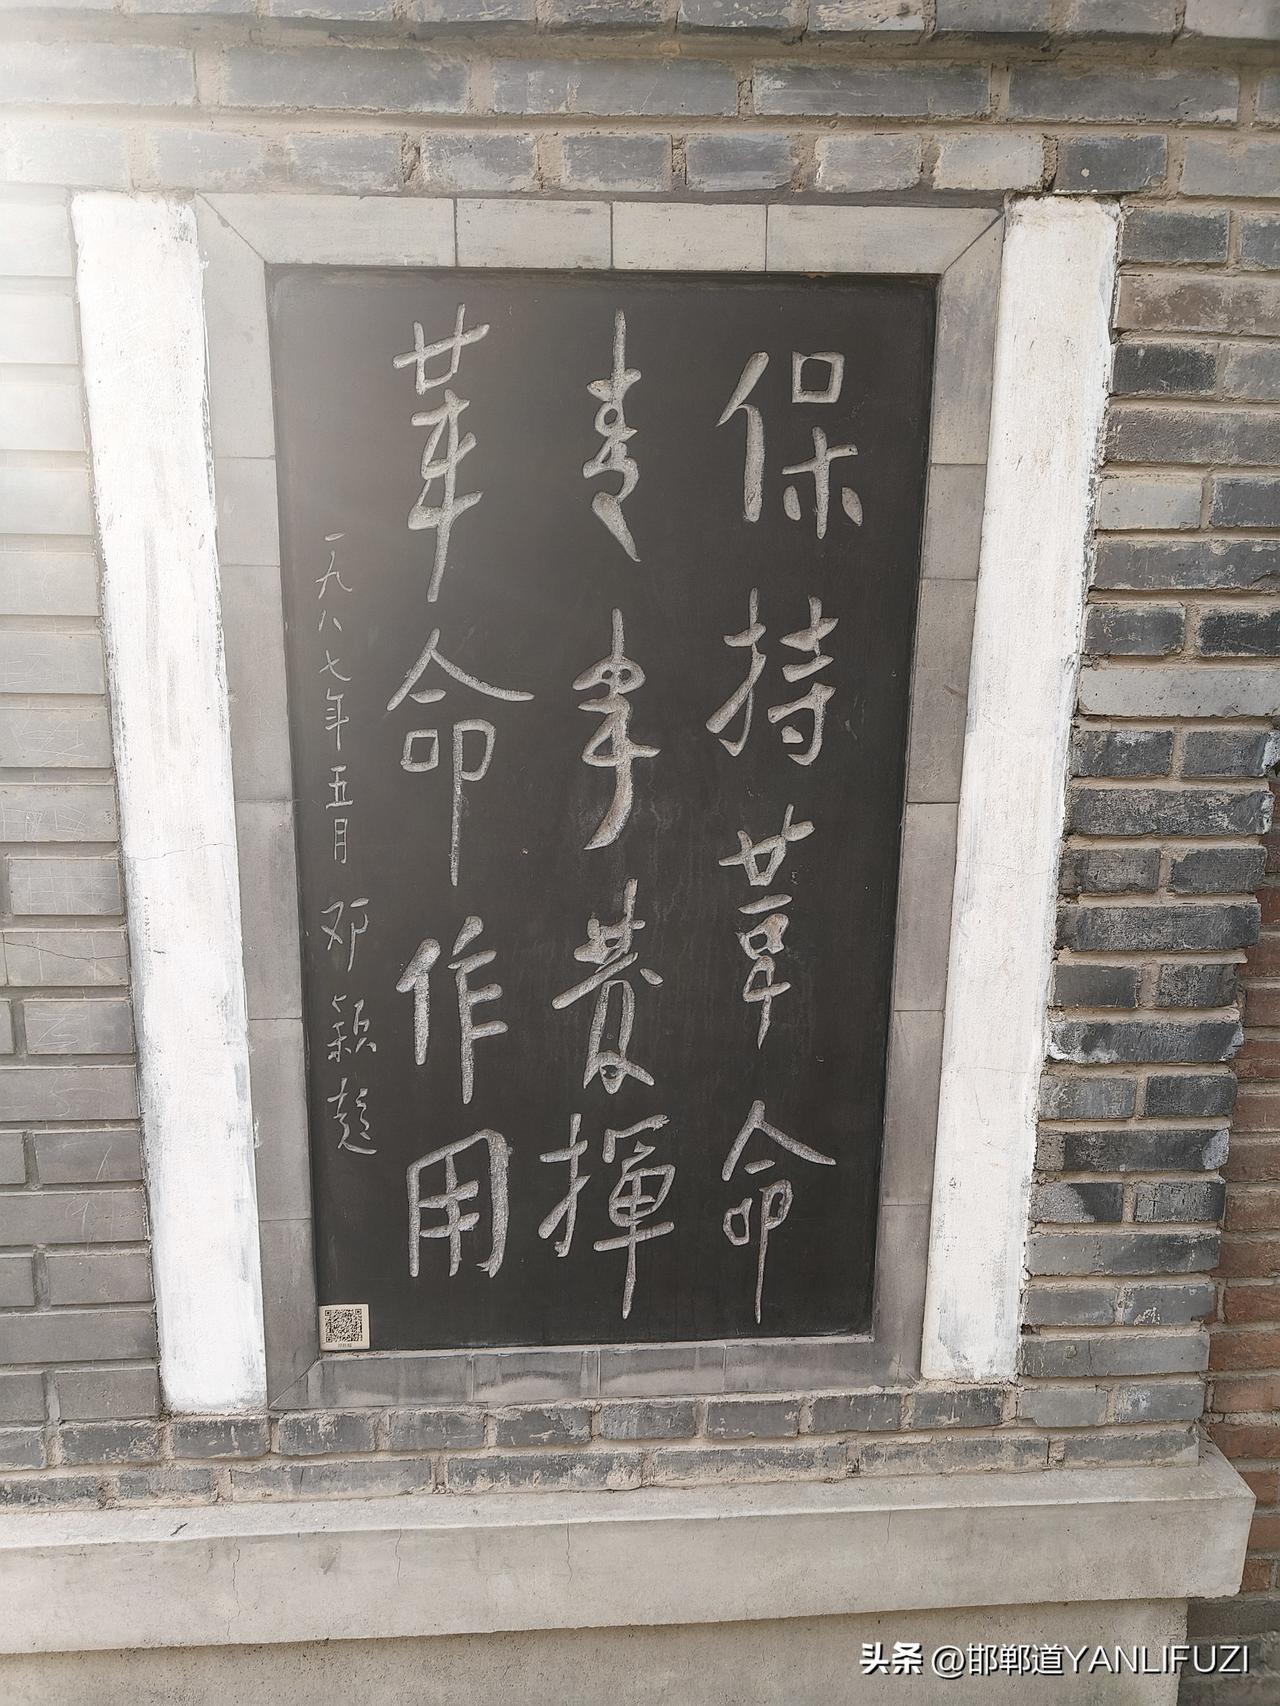 保持革命
青年發揮
革命作用
一九八七年五月 邓颖超
头条 @邯郸道YANLIFUZI